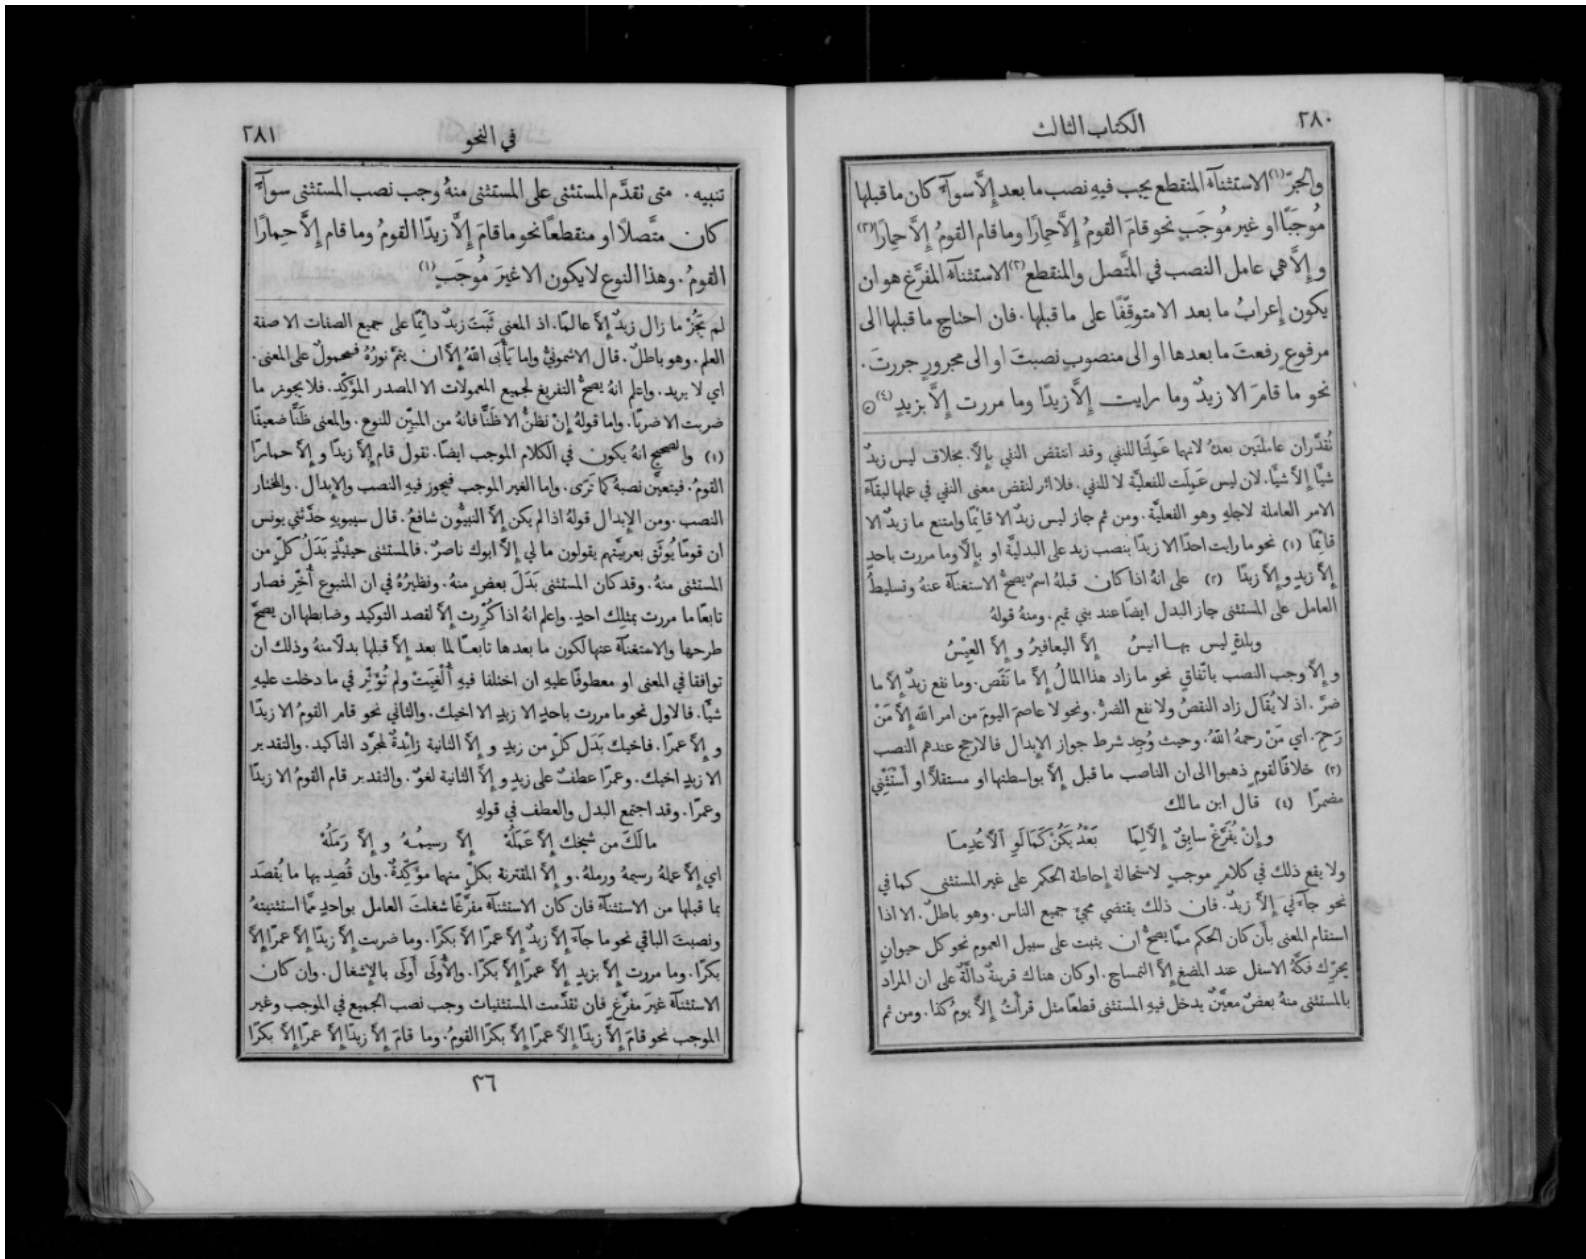 ٢٨٠
الكتاب الثالث
والجرّ (١) الاستثنآء المنقطع يجب فيهِ نصب ما بعد إلَّا سوآء كان ما قبلها
مُوجَبًا او غير مُوجَبٍ نحو قامَ القومُ إلَّا حِمارًا وما قام القومُ إلَّا حمارًا (٢)
و إلَّا هي عامل النصب في المتَّصل والمنقطع (٣) الاستثنآء المفرَّغ هو ان
يكون إعرابُ ما بعد الا متوقِّفًا على ما قبلها . فان احتاج ما قبلها الى
مرفوعٍ رفعتَ ما بعدها او الى منصوبٍ نصبتَ او الى مجرورٍ جررتَ .
نحو ما قامَ الا زيدٌ وما رايت إلَّا زيدًا وما مررت إلَّا بزيدٍ (٤)
تُقدَّران عاملتَين بعدهُ لانهما عَمِلَتا للنفي وقد انتقض النفي بإلَّا . بخلاف ليس زيدٌ
شيًّا إلَّا شيًّا . لان ليس عَمِلَت للفعليَّة لا للنفي . فلا اثر لنقض معنى النفي في عملها لبقآء
الامر العاملة لاجلهِ وهو الفعليَّة . ومن ثم جاز ليس زيدٌ الا قائمًا وامتنع ما زيدٌ الا
قائِمًا (١) نحو ما رايت احدًا الا زيدًا بنصب زيد على البدليَّة او بإلَّا وما مررت باحدٍ
إلَّا زيدٍ و إلَّا زيدًا (٢) على انهُ اذا كان قبلهُ اسمٌ يصحُّ الاستغنآء عنهُ وتسليطُ
العامل على المستثنى جاز البدل ايضًا عند بني تميم . ومنهُ قولهُ
وبلدةٍ ليس بهـا انيسُ إلَّا اليعافيرُ و إلَّا العِيْسُ
و إلَّا وجب النصب باتّفاقٍ نحو ما زاد هذا المالُ إلَّا ما نَقَص . وما نفع زيدٌ إلَّا ما
ضرَّ . اذ لا يُقَال زاد النقصُ ولا نفع الضرُّ . ونحو لا عاصمَ اليومَ من امر الله إلَّا مَنْ
رَحِمَ . اي مَنْ رحمهُ اللهُ . وحيث وُجِد شرط جواز الإبدال فالارجح عندهم النصب
(٣) خلافًا لقومٍ ذهبوا الى ان الناصب ما قبل إلَّا بواسطتها او مستقلًّا او أَسْتَثْنِي
مضمرًا (٤) قال ابن مالك
و إنْ يُفَرَّغْ سابِقٌ إلَّا لِمَا بَعْدُ يَكُنْ كَمَا لَوِ ٱلَّا عُدِمـا
ولا يقع ذلك في كلامٍ موجبٍ لاستحالة إحاطة الحكم على غير المستثنى كما في
نحو جآءَني إلَّا زيدٌ . فان ذلك يقتضي مجيَ جميع الناس . وهو باطلٌ . الا اذا
استقام المعنى بأن كان الحكم ممَّا يصحُّ ان يثبت على سبيل العموم نحو كل حيوانٍ
يحرِّك فكَّهُ الاسفل عند المضغ إلَّا التمساح . او كان هناك قرينةٌ دالَّةٌ على ان المراد
بالمستثنى منهُ بعضٌ معيَّنٌ يدخل فيهِ المستثنى قطعًا مثل قرأتُ إلَّا يومُ كذا . ومن ثم
في النحو
٢٨١
تنبيه . متى تقدَّم المستثنى على المستثنى منهُ وجب نصب المستثنى سوآءٌ
كان متَّصلًا او منقطعًا نحو ما قامَ إلَّا زيدًا القومُ وما قام إلَّا حِمارًا
القومُ . وهذا النوع لا يكون الا غيرَ مُوجَبٍ (١)
لم يَجُزْ ما زال زيدٌ إلَّا عالمًا . اذ المعنى ثَبَتَ زيدٌ دائِمًا على جميع الصفات الا صفة
العلم . وهو باطلٌ . قال الاشمونيُّ واما يَأْبَى اللهُ إلَّا ان يتمَّ نورُهُ فمحمولٌ على المعنى .
اي لا يريد . واعلم انهُ يصحُّ التفريغ لجميع المعمولات الا المصدر المؤكِّد . فلا يجوز ما
ضربت الا ضربًا . واما قولهُ إنْ نظنُّ الا ظنًّا فانهُ من المبيّن للنوع . والمعنى ظنًّا ضعيفًا
(١) والصحيح انهُ يكون في الكلام الموجب ايضًا . نقول قام إلَّا زيدًا و إلَّا حمارًا
القومُ . فيتعيَّن نصبهُ كما تَرَى . واما الغير الموجب فيجوز فيهِ النصب والإبدال . والمختار
النصب . ومن الإبدال قولهُ اذا لم يكن إلَّا النبيُّون شافعُ . قال سيبويهِ حدَّثني يونس
ان قومًا يُوثَق بعربيَّتهم يقولون ما لي إلَّا ابوك ناصرٌ . فالمستثنى حينئِذٍ بَدَلُ كلٍّ من
المستثنى منهُ . وقد كان المستثنى بَدَلَ بعضٍ منهُ . ونظيرُهُ في ان المتبوع أُخِّر فصار
تابعًا ما مررت بمثلِك احدٍ . واعلم انهُ اذا كُرِّرت إلَّا لقصد التوكيد وضابطها ان يصحَّ
طرحها والاستغنآء عنها لكون ما بعدها تابعـًا لما بعد إلَّا قبلها بدلًا منهُ وذلك ان
توافقا في المعنى او معطوفًا عليهِ ان اختلفا فيهِ أُلْغِيَتْ ولم تُؤَثِّر في ما دخلت عليهِ
شيًّا . فالاول نحو ما مررت باحدٍ الا زيدٍ الا اخيك . والثاني نحو قام القومُ الا زيدًا
و إلَّا عمرًا . فاخيك بَدَل كلٍّ من زيدٍ و إلَّا الثانية زائِدةٌ لمجرَّد التأكيد . والتقدير
الا زيدٍ اخيك . وعمرًا عطفٌ على زيدٍ و إلَّا الثانية لغوٌ . والتقدير قام القومُ الا زيدًا
وعمرًا . وقد اجتمع البدل والعطف في قولهِ
مالَكَ من شيخك إلَّا عَمَلُهْ إلَّا رسيمُـهُ و إلَّا رَمَلُهْ
اي إلَّا عملهُ رسيمهُ ورملهُ . و إلَّا المقترنة بكلٍّ منهما مؤكِّدةٌ . وان قُصِد بها ما يُقصَد
بما قبلها من الاستثنآء فان كان الاستثنآء مفرَّغًا شغلتَ العامل بواحدٍ ممَّا استثنيتهُ
ونصبتَ الباقي نحو ما جآءَ إلَّا زيدٌ إلَّا عمرًا الَّا بكرًا . وما ضربت إلَّا زيدًا إلَّا عمرًا إلَّا
بكرًا . وما مررت إلَّا بزيدٍ إلَّا عمرًا إلَّا بكرًا . والأُولَى أَولَى بالإشغال . وان كان
الاستثنآء غيرَ مفرَّغٍ فان تقدَّمت المستثنيات وجب نصب الجميع في الموجب وغير
الموجب نحو قامَ إلَّا زيدًا إلَّا عمرًا إلَّا بكرًا القومُ . وما قامَ إلَّا زيدًا إلَّا عمرًا إلَّا بكرًا
٣٦